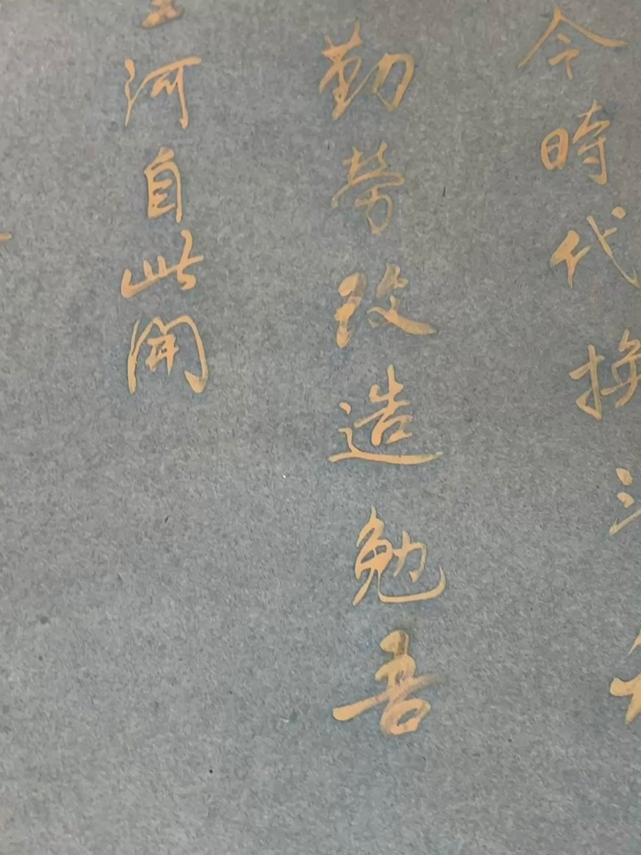 今時代換
勤勞改造勉吾
河自此開